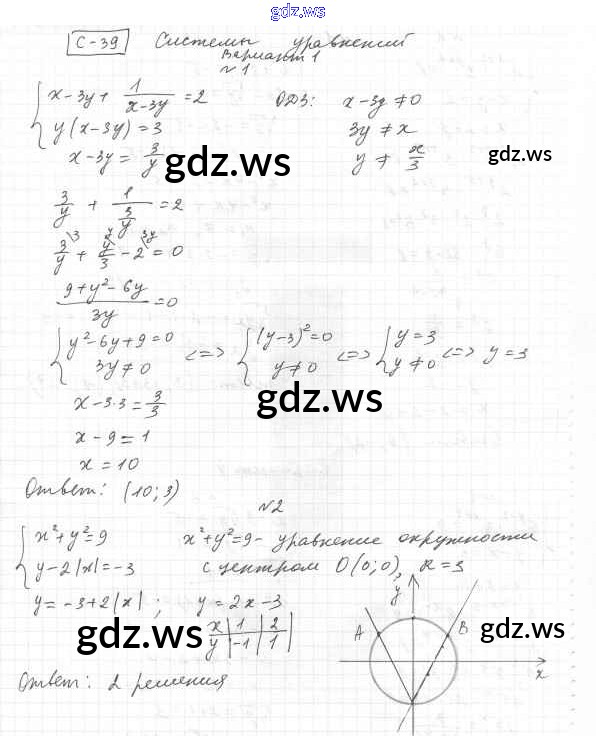 gdz.ws
С-39 Системы уравнений
Вариант 1
№1
{ x-3y + 1/(x-3y) = 2 ОДЗ: x-3y ≠ 0
{ y(x-3y) = 3 3y ≠ x
x-3y = 3/y y ≠ x/3
gdz.ws gdz.ws
3/y + 1/(3/y) = 2
3/y \3 + y/3 \y - 2 \3y = 0
(9+y²-6y)/3y = 0
{ y²-6y+9=0 <=> { (y-3)²=0 <=> { y=3 <=> y=3
{ 3y≠0 { y≠0 { y≠0
gdz.ws
x-3·3 = 3/3
x-9=1
x=10
Ответ: (10; 3)
№2
{ x²+y²=9 x²+y²=9 - уравнение окружности
{ y-2|x|=-3 с центром O(0;0), R=3
y = -3+2|x| ; y = 2x-3
gdz.ws gdz.ws
x | 1 | 2 |
y | -1 | 1 |
y
A B
x
Ответ: 2 решения